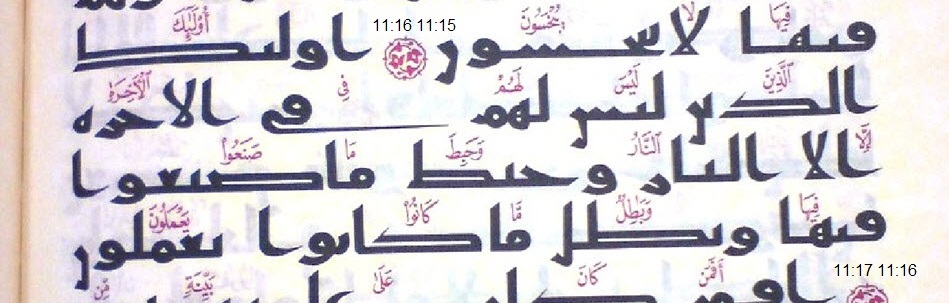 11:16 11:15
فِيهَا لَا يُبْخَسُونَ أُوْلَٰٓئِكَ
فيها لا يبخسون اوليك
ٱلَّذِينَ لَيْسَ لَهُمْ فِي ٱلْأٓخِرَةِ
الذين ليس لهم في الاخره
إِلَّا ٱلنَّارُ وَحَبِطَ مَا صَنَعُواْ
الا النار وحبط ما صنعوا
فِيهَا وَبَٰطِلٌ مَّا كَانُواْ يَعْمَلُونَ
فيها وبطل ما كانوا يعملون
11:17 11:16
أَفَمَن كَانَ عَلَىٰ بَيِّنَةٍ مِّن